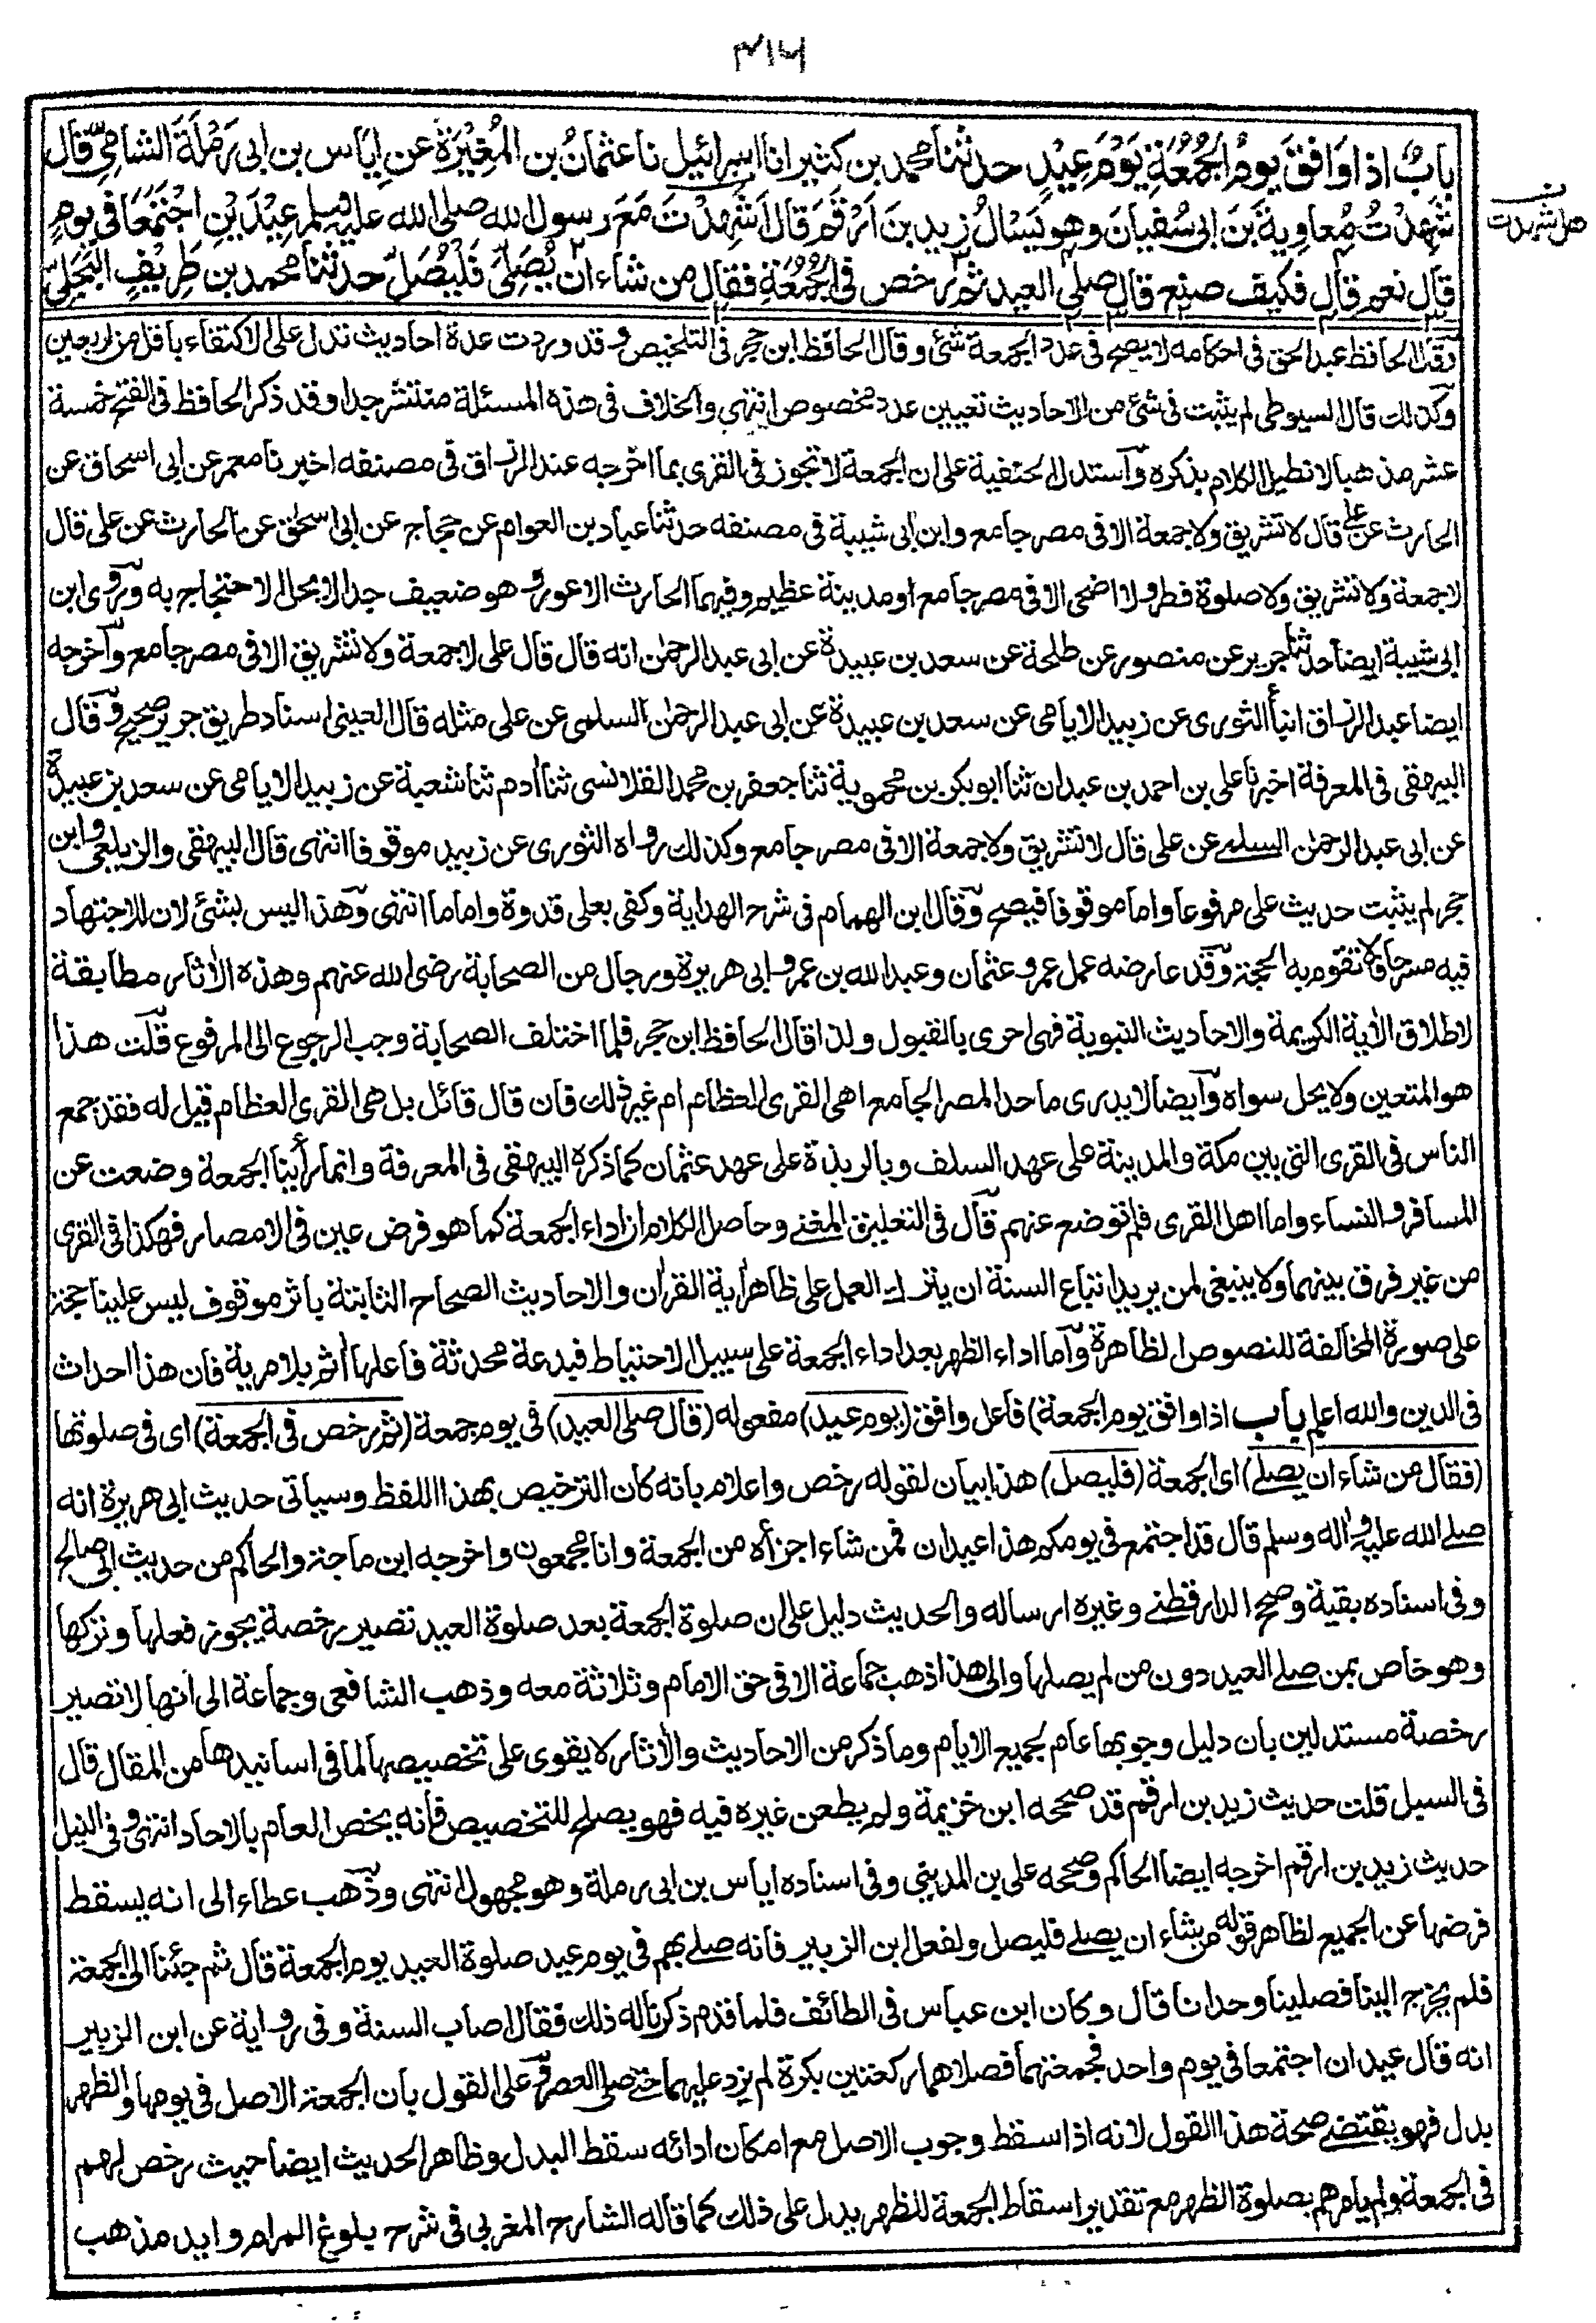 ٤١٦
بابٌ اذا وَافَقَ يومُ الجُمُعَةِ يَوْمَ عِيْدٍ حدثنا محمد بن كثير انا اسرائيل نا عثمانُ بن المُغِيْرَةَ عن اِيَاس بن ابى رَمْلَةَ الشامِىّ قال
شَهِدْتُ مُعاوِيةَ بْنَ ابى سُفيانَ وهو يَسْألُ زيد بن اَرْقَمَ قال اَشَهِدْتَ مَعَ رسول الله صلى الله عليه وسلم عِيْدَيْنِ اجْتَمَعَا فى يومٍ
هل شهدت
قال نعم قال فكيف صنع قال صلى العيد ثم رخص فى الجُمُعَةِ فقال من شاء ان يُصَلِّىَ فَلْيُصَلِّ حدثنا محمد بن طَرِيْفٍ البَجَلِىّ
وقال الحافظ عبد الحق فى احكامه لا يصح فى عدد الجمعة شئ وقال الحافظ ابن حجر فى التلخيص وقد وردت عدة احاديث تدل على الاكتفاء باقل من اربعين
وكذلك قال السيوطى لم يثبت فى شئ من الاحاديث تعيين عدد مخصوص انتهى والخلاف فى هذه المسئلة منتشر جدا وقد ذكر الحافظ فى الفتح خمسة
عشر مذهبا لا نطيل الكلام بذكره وآستدل الحنفية على ان الجمعة لا تجوز فى القرى بما اخرجه عبد الرزاق فى مصنفه اخبرنا معمر عن ابى اسحاق عن
الحارث عن على قال لا تشريق ولا جمعة الا فى مصر جامع وابن ابى شيبة فى مصنفه حدثنا عباد بن العوام عن حجاج عن ابى اسحٰق عن الحارث عن على قال
لا جمعة ولا تشريق ولا صلوة فطر ولا اضحى الا فى مصر جامع او مدينة عظيمة وفيهما الحارث الاعور وهو ضعيف جدا لا يحل الاحتجاج به وروى ابن
ابى شيبة ايضا حدثنا جرير عن منصور عن طلحة عن سعد بن عبيدة عن ابى عبد الرحمٰن انه قال قال على لا جمعة ولا تشريق الا فى مصر جامع وآخرجه
ايضا عبد الرزاق انبأ الثورى عن زبيد الايامى عن سعد بن عبيدة عن ابى عبد الرحمٰن السلمى عن على مثله قال العينى اسناد طريق جرير صحيح وقال
البيهقى فى المعرفة اخبرنا على بن احمد بن عبدان ثنا ابو بكر بن محموية ثنا جعفر بن محمد القلانسى ثنا اٰدم ثنا شعبة عن زبيد الايامى عن سعد بن عبيدة
عن ابى عبد الرحمٰن السلمى عن على قال لا تشريق ولا جمعة الا فى مصر جامع وكذلك رواه الثورى عن زبيد موقوفا انتهى قال البيهقى والزيلعى وابن
حجر لم يثبت حديث على مرفوعا واما موقوفا فيصح وقال ابن الهمام فى شرح الهداية وكفى بعلى قدوة واماما انتهى وهذا ليس بشئ لان للاجتهاد
فيه مسرحا فلا تقوم به الحجة وقد عارضه عمل عمر وعثمان وعبد الله بن عمر وابى هريرة ورجال من الصحابة رضى الله عنهم وهذه الاٰثار مطابقة
لاطلاق الاٰية الكريمة والاحاديث النبوية فهى احرى بالقبول ولذا قال الحافظ ابن حجر فلما اختلف الصحابة وجب الرجوع الى المرفوع قلت هذا
هو المتعين ولا يحل سواه وآيضا لا يدرى ما حد المصر الجامع اهى القرى العظام ام غير ذلك فان قال قائل بل هى القرى العظام قيل له فقد جمع
الناس فى القرى التى بين مكة والمدينة على عهد السلف وبالربذة على عهد عثمان كما ذكره البيهقى فى المعرفة وانما رأينا الجمعة وضعت عن
المسافر والنساء واما اهل القرى فلم توضع عنهم قآل فى التعليق المغنى وحاصل الكلام ان اداء الجمعة كما هو فرض عين فى الامصار فهكذا فى القرى
من غير فرق بينهما ولا ينبغى لمن يريد اتباع السنة ان يترك العمل على ظاهر اٰية القراٰن والاحاديث الصحاح الثابتة باثر موقوف ليس علينا حجة
على صورة المخالفة للنصوص الظاهرة وآما اداء الظهر بعد اداء الجمعة على سبيل الاحتياط فبدعة محدثة فاعلها اٰثم بلا مرية فان هذا احداث
فى الدين والله اعلم باب اذا وافق يوم الجمعة) فاعل وافق (يوم عيد) مفعوله (قال صلى العيد) فى يوم جمعة (ثم رخص فى الجمعة) اى فى صلوتها
(فقال من شاء ان يصلى) اى الجمعة (فليصل) هذا بيان لقوله رخص واعلام بانه كان الترخيص بهذا اللفظ وسياتى حديث ابى هريرة انه
صلى الله عليه واٰله وسلم قال قد اجتمع فى يومكم هذا عيدان فمن شاء اجزأه من الجمعة وانا مجمعون واخرجه ابن ماجة والحاكم من حديث ابى صالح
وفى اسناده بقية وصحح الدارقطنى وغيره ارساله والحديث دليل على ان صلوة الجمعة بعد صلوة العيد تصير رخصة يجوز فعلها وتركها
وهو خاص بمن صلى العيد دون من لم يصلها والى هذا ذهب جماعة الا فى حق الامام وثلاثة معه وذهب الشافعى وجماعة الى انها لا تصير
رخصة مستدلين بان دليل وجوبها عام لجميع الايام وما ذكر من الاحاديث والاٰثار لا يقوى على تخصيصها لما فى اسانيدها من المقال قال
فى السبل قلت حديث زيد بن ارقم قد صححه ابن خزيمة ولم يطعن غيره فيه فهو يصلح للتخصيص فانه يخص العام بالاٰحاد انتهى وفى النيل
حديث زيد بن ارقم اخرجه ايضا الحاكم وصححه على بن المدينى وفى اسناده اياس بن ابى رملة وهو مجهول انتهى وذهب عطاء الى انه يسقط
فرضها عن الجميع لظاهر قوله من شاء ان يصلى فليصل ولفعل ابن الزبير فانه صلى بهم فى يوم عيد صلوة العيد يوم الجمعة قال ثم جئنا الى الجمعة
فلم يخرج الينا فصلينا وحدانا قال وكان ابن عباس فى الطائف فلما قدم ذكرنا له ذلك فقال اصاب السنة وفى رواية عن ابن الزبير
انه قال عيدان اجتمعا فى يوم واحد فجمعهما فصلاهما ركعتين بكرة لم يزد عليهما حتى صلى العصر وعلى القول بان الجمعة الاصل فى يومها والظهر
بدل فهو يقتضى صحة هذا القول لانه اذا سقط وجوب الاصل مع امكان ادائه سقط البدل وظاهر الحديث ايضا حيث رخص لهم
فى الجمعة ولم يامرهم بصلوة الظهر مع تقدير اسقاط الجمعة للظهر يدل على ذلك كما قاله الشارح المغربى فى شرح بلوغ المرام وايد مذهب